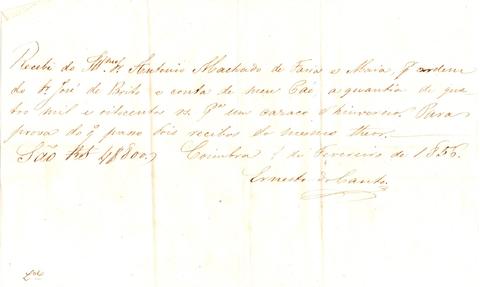 Recebi do Illmo Sr. Antonio Machado de Faria e Maia, por ordem
do Sr. José de Brito e conta de meu Pae a quantia de qua
tro mil e oitocentos rs. pa um casaco d'hinverno. Para
prova do q passo dois recibos do mesmo theor.
São Rs 4$800. Coimbra 1 de Fevereiro de 1856.
Ernesto do Canto